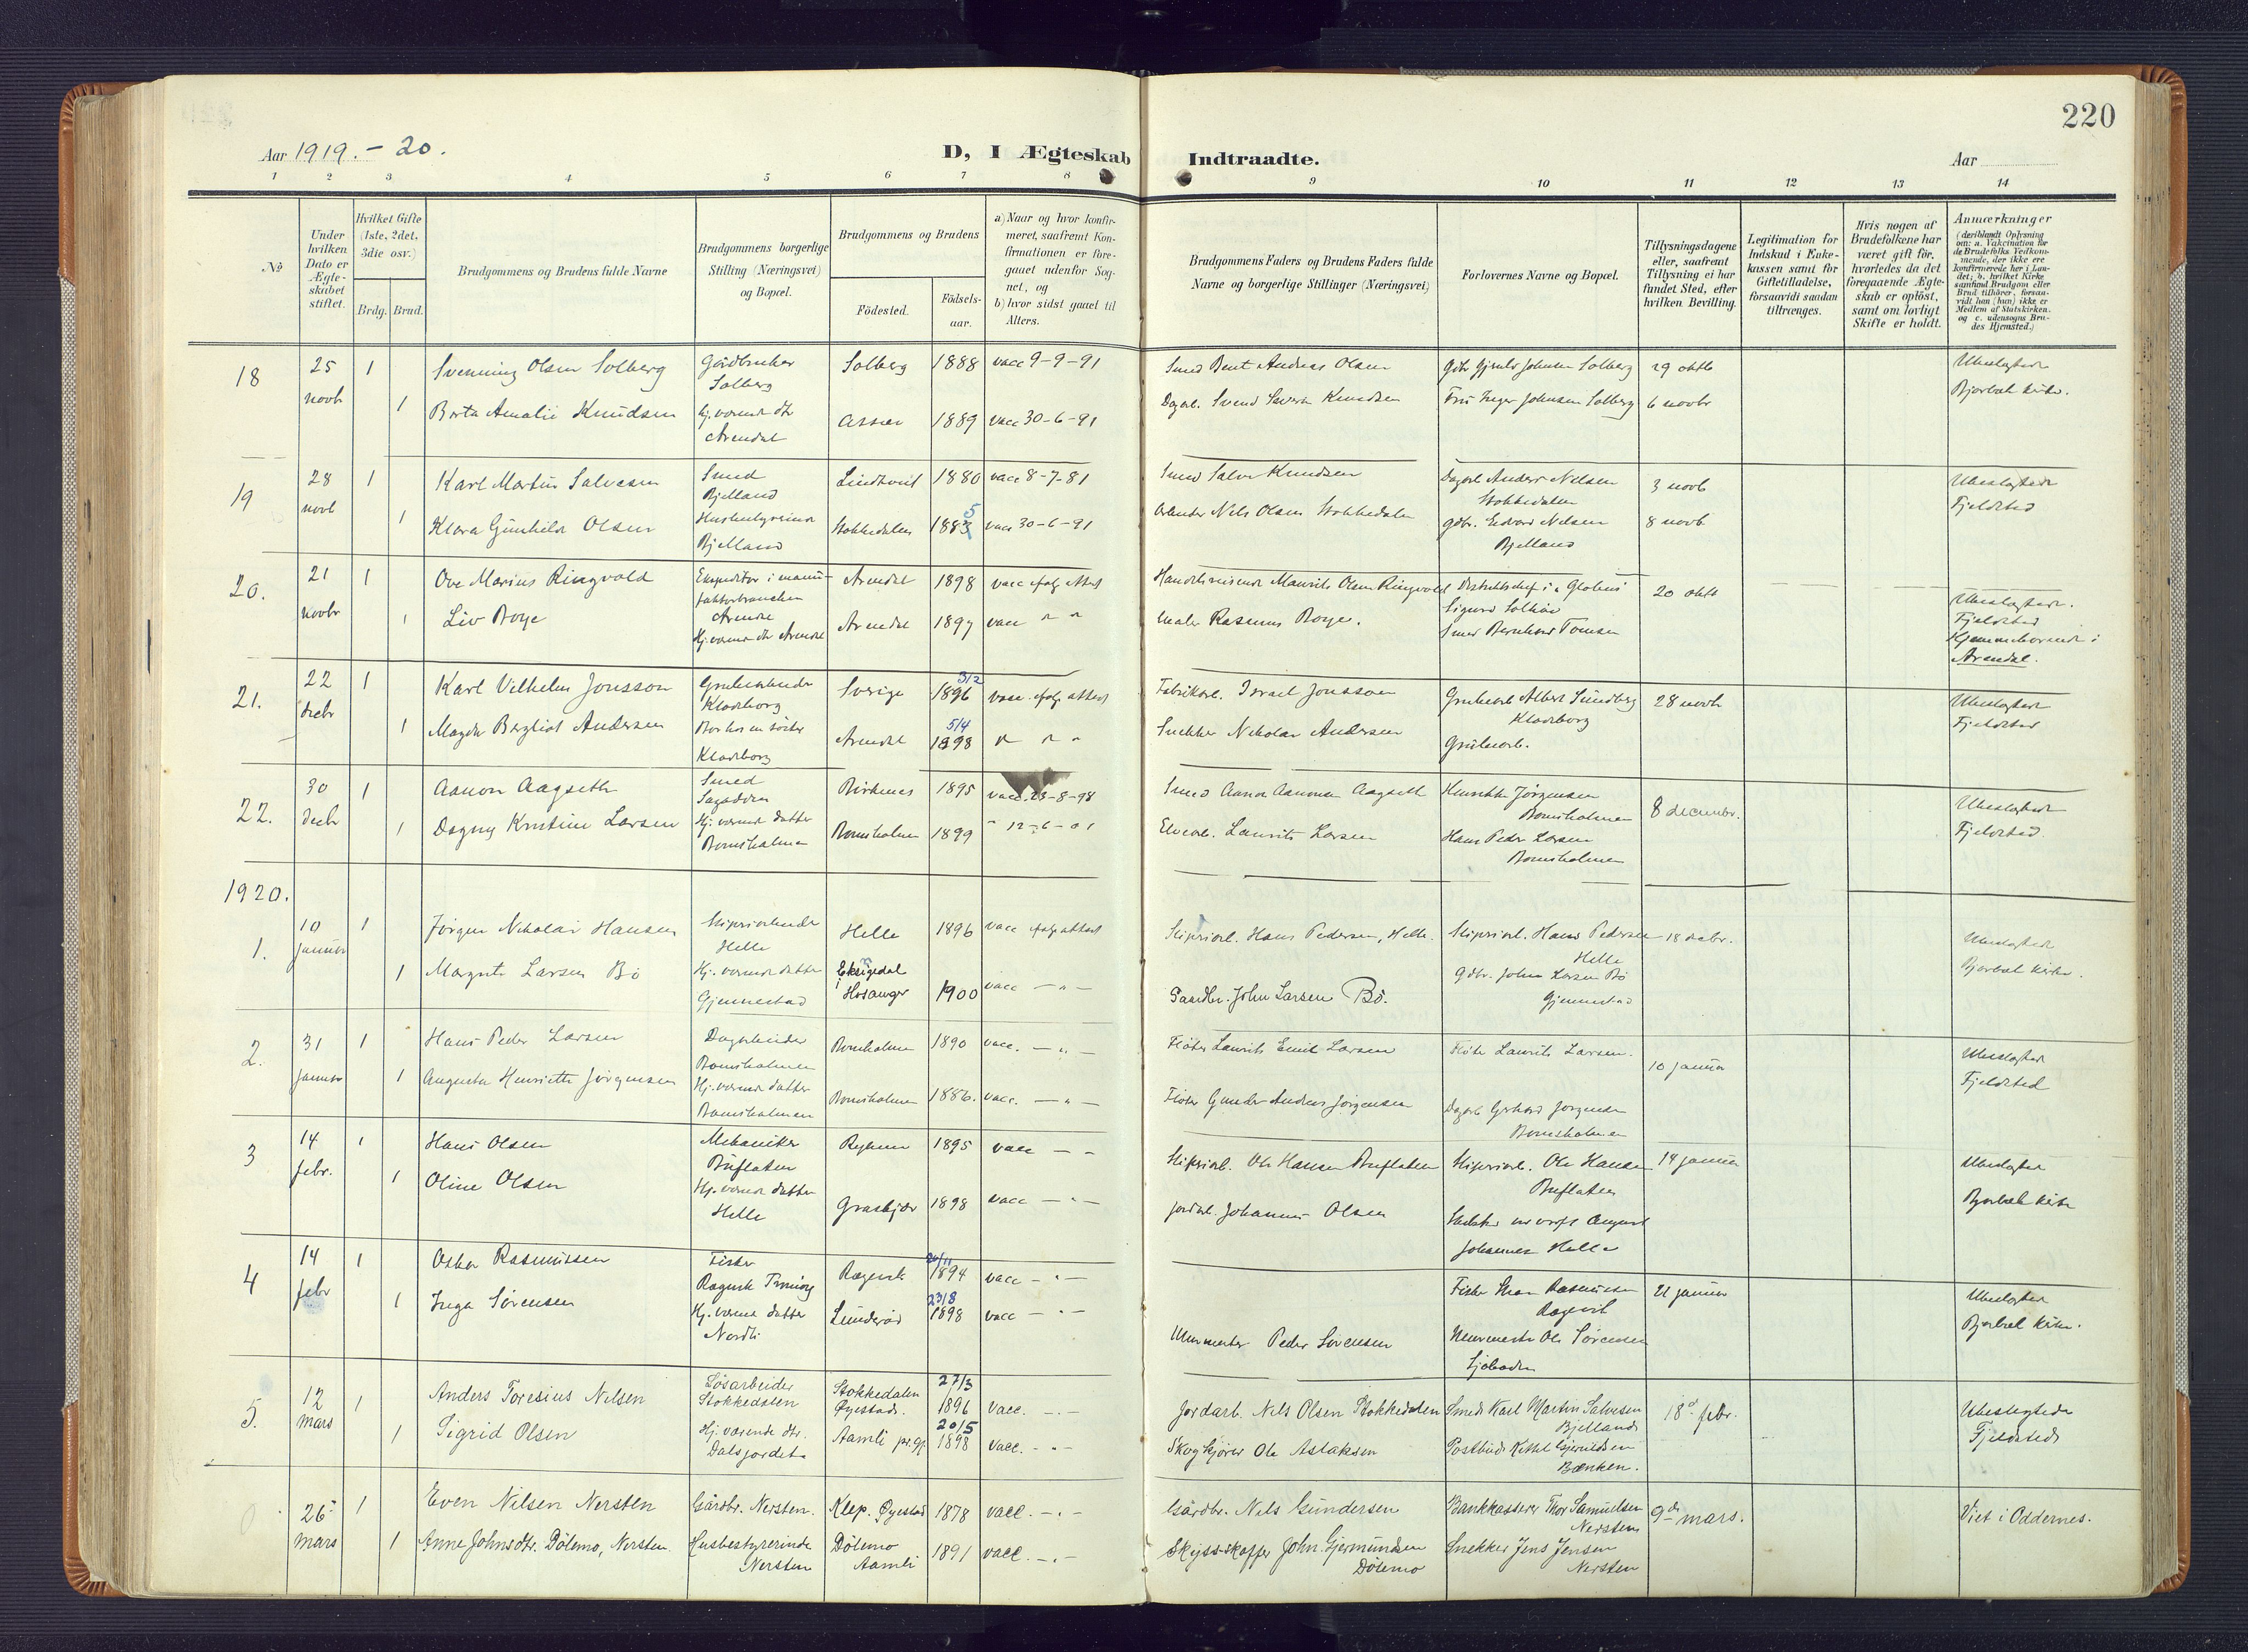 220
Aar 1919.-20.
D, I Ægteskab Indtraadte.
Aar
1 2 3 4 5 6 7 8 9 10 11 12 13 14
No
Under hvilken Dato er Ægteskabet stiftet.
Hvilket Gifte (1ste, 2det, 3die osv.)
Brdg. Brud.
Brudgommens og Brudens fulde Navne
Brudgommens borgerlige Stilling (Næringsvei) og Bopæl.
Brudgommens og Brudens
Fødested.
Fødsels-aar.
a) Naar og hvor konfirmeret, saafremt Konfirmationen er foregaaet udenfor Sognet, og
b) hvor sidst gaaet til Alters.
Brudgommens Faders og Brudens Faders fulde Navne og borgerlige Stillinger (Næringsvei)
Forlovernes Navne og Bopæl.
Tillysningsdagene eller, saafremt Tillysning ei har fundet Sted, efter hvilken Bevilling.
Legitimation for Indskud i Enkekassen samt for Giftetilladelse, forsaavidt saadan tiltrænges.
Hvis nogen af Brudefolkene har været gift før, hvorledes da det foregaaende Ægteskab er opløst, samt om lovligt Skifte er holdt.
Anmærkninger (deriblandt Oplysning om: a. Vakcination for de Brudefolks Vedkommende, der ikke ere konfirmerede her i Landet; b. hvilket Kirkesamfund Brudgom eller Brud tilhører, forsaavidt han (hun) ikke er Medlem af Statskirken, og c. udensogns Brudes Hjemsted.)
18 25 novb 1 Svenning Olsen Solberg Gårdbruker Solberg Solberg 1888 vacc 9-9-91 Smed Bent Andreas Olsen Johnsen Solberg 29 oktb Ubeslegtede
1 Berta Amalie Knudsen Hj. værende dtr Arendal 1889 vacc 30-6-91 Dagarb. Svend Knudsen Johnsen Solberg 6 novbr Bjorbæk kirke.
19 28 novb 1 Karl Martin Salvesen Smed Bjelland 1880 vacc 8-7-81 Smed Salve Knudsen Dagarb Anders Nilsen Stokkedalen 3 novb Ubeslegtede
1 Klara Gunhild Olsen Husbestyrerinde Bjelland Stokkedalen 1883 5 vacc 30-6-91 Arbeider Nils Olsen Stokkedalen gdbr. Edvard Nilsen Bjelland 8 novb Fjeldsted
20. 21 novbr 1 Ove Marius Ringvold Expeditør i manufakturbranchen Arendal Arendal 1898 vacc ifølg attest Handelsreisende Maurits Olsen Ringvold Distriktschef i "Globus" Sigurd 20 oktb Ubeslegtede.
1 Liv Boye Hj. værende dtr Arendal Arendal 1897 vacc " " Maler Rasmus Boye. Smed Bernhard Tomsen Fjeldsted Hjemmehørende i Arendal.
21. 22 decbr 1 Karl Vilhelm Jonsson Grubearbeider Klodeborg Sverige 3/2 1896 vacc. ifølg attest Fabrikarb. Israel Jonsson Grubearb Albert Sundberg Klodeborg 28 novb Ubeslegtede
1 Magda Bergliot Andersen Bor hos en søster Klodeborg Arendal 5/4 1898 " " " Snekker Nikolai Andersen Grubearb. Fjeldsted
22. 30 decbr 1 Aanon Aagseth Smed Birkenes 1895 vacc. 23-8-98 Smed Aanon Aanonsen Aagseth Henrik Jørgensen Bomsholmen 8 decembr. Ubeslegtede
1 Dagny Kristine Larsen Hj. værende datter Bomsholmen Bomsholmen 1899 " 12-6-01 Elvearb. Laurits Larsen Hans Peder Larsen Bomsholmen Fjeldsted.
1920.
1. 10 januar 1 Jørgen Nikolai Hansen Slipriarbeider Helle Helle 1896 vacc ifølg attest Slipriarb. Hans Pedersen, Helle. Slipriarb. Hans Pedersen Helle 18 decbr. Ubeslegtede
1 Margrete Larsen Bö Hj. værende datter Gjennestad Eksingedal Hosanger 1900 vacc - " - Gaardbr. John Larsen Bö. Gdbr. John Larsen Bö Gjennestad Bjorbæk kirke.
2. 31 januar 1 Hans Peder Larsen Dagarbeider Bomsholmen Bomsholmen 1890 vacc. - " - Fløter Laurits Emil Larsen Fløter Laurits Larsen. 10 januar Ubeslegtede
1 Augusta Henriette Jørgensen Hj. værende datter Bomsholmen Bomsholmen 1886. vacc. - " - Fløter Gunder Andreas Jørgensen Dagarb Gerhard Jørgensen Bomsholmen Fjeldsted
3 14 febr. 1 Hans Olsen Mekaniker Buflaten Rykene 1895 vacc - " Slipriarb. Ole Hansen Buflaten Slipriarb. Ole Hansen Buflaten 14 januar Ubeslegtede
1 Oline Olsen Hj. værende datter Helle Graskjær 1898 vacc - " - Jordarb. Johannes Olsen August Johannes Helle Bjorbæk kirke
4 14 febr 1 Oskar Rasmussen Fisker Rægevik Tromøy Rægevik 20/11 1894 vacc - " - Fisker Rasmussen Rægevik 22 januar Ubeslegtede
1 Inga Sørensen Hj. værende datter Nordli Lunderød 23/8 1898 vacc - " - Murmester Peder Sørensen Murmester Ole Sørensen Bjorbæk kirke.
5. 12 mars 1 Anders Toresius Nilsen Løsarbeider Stokkedalen Stokkedalen Øyestad. 27/3 1896 Vacc. - " - Jordarb. Nils Olsen Stokkedalen Smed Karl Martin Salvesen Bjelland 18de febr. Ubeslegtede
1 Sigrid Olsen Hj. værende dtr. Dalsjordet Aamli pr.gj. 20/5 1898 Vacc. - " - Skogkjører Ole Aslaksen Postbud Kittel Gjeruldsen Bænken. Fjeldsted
26de mars 1 Even Nilsen Nersten Gårdbr. Nersten. Klep. Øyestad 1878 vacc. - " - Gårdbr. Nils Gundersen Bankkasserer Thor Samuelsen Nersten 9de mars. Viet i Oddernes.
1 Anne Johnsdtr. Dölemo, Nersten. Husbestyrerinde Nersten Dölemo Aamli 1891 vacc. - " - Skyss-skaffer John Gjermundsen Dölemo Snekker Jens Jensen Nersten